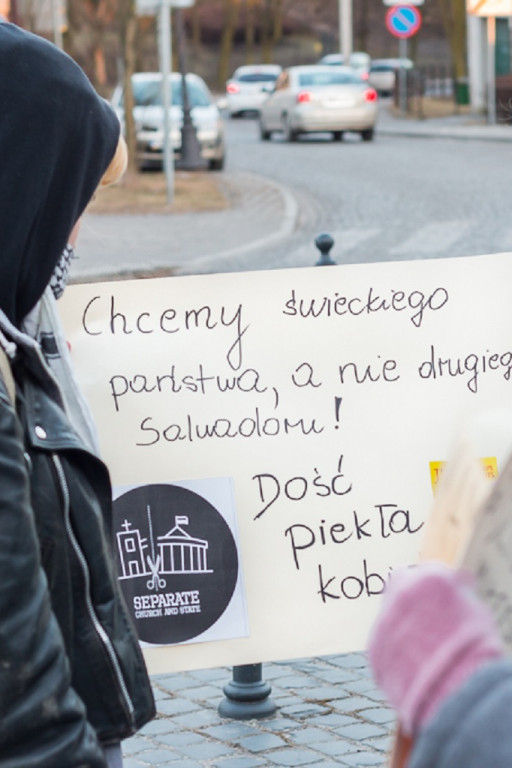 Chcemy świeckiego
państwa, a nie drugieg
Salwadoru!
Dość
piekła
kobi
SEPARATE
CHURCH AND STATE